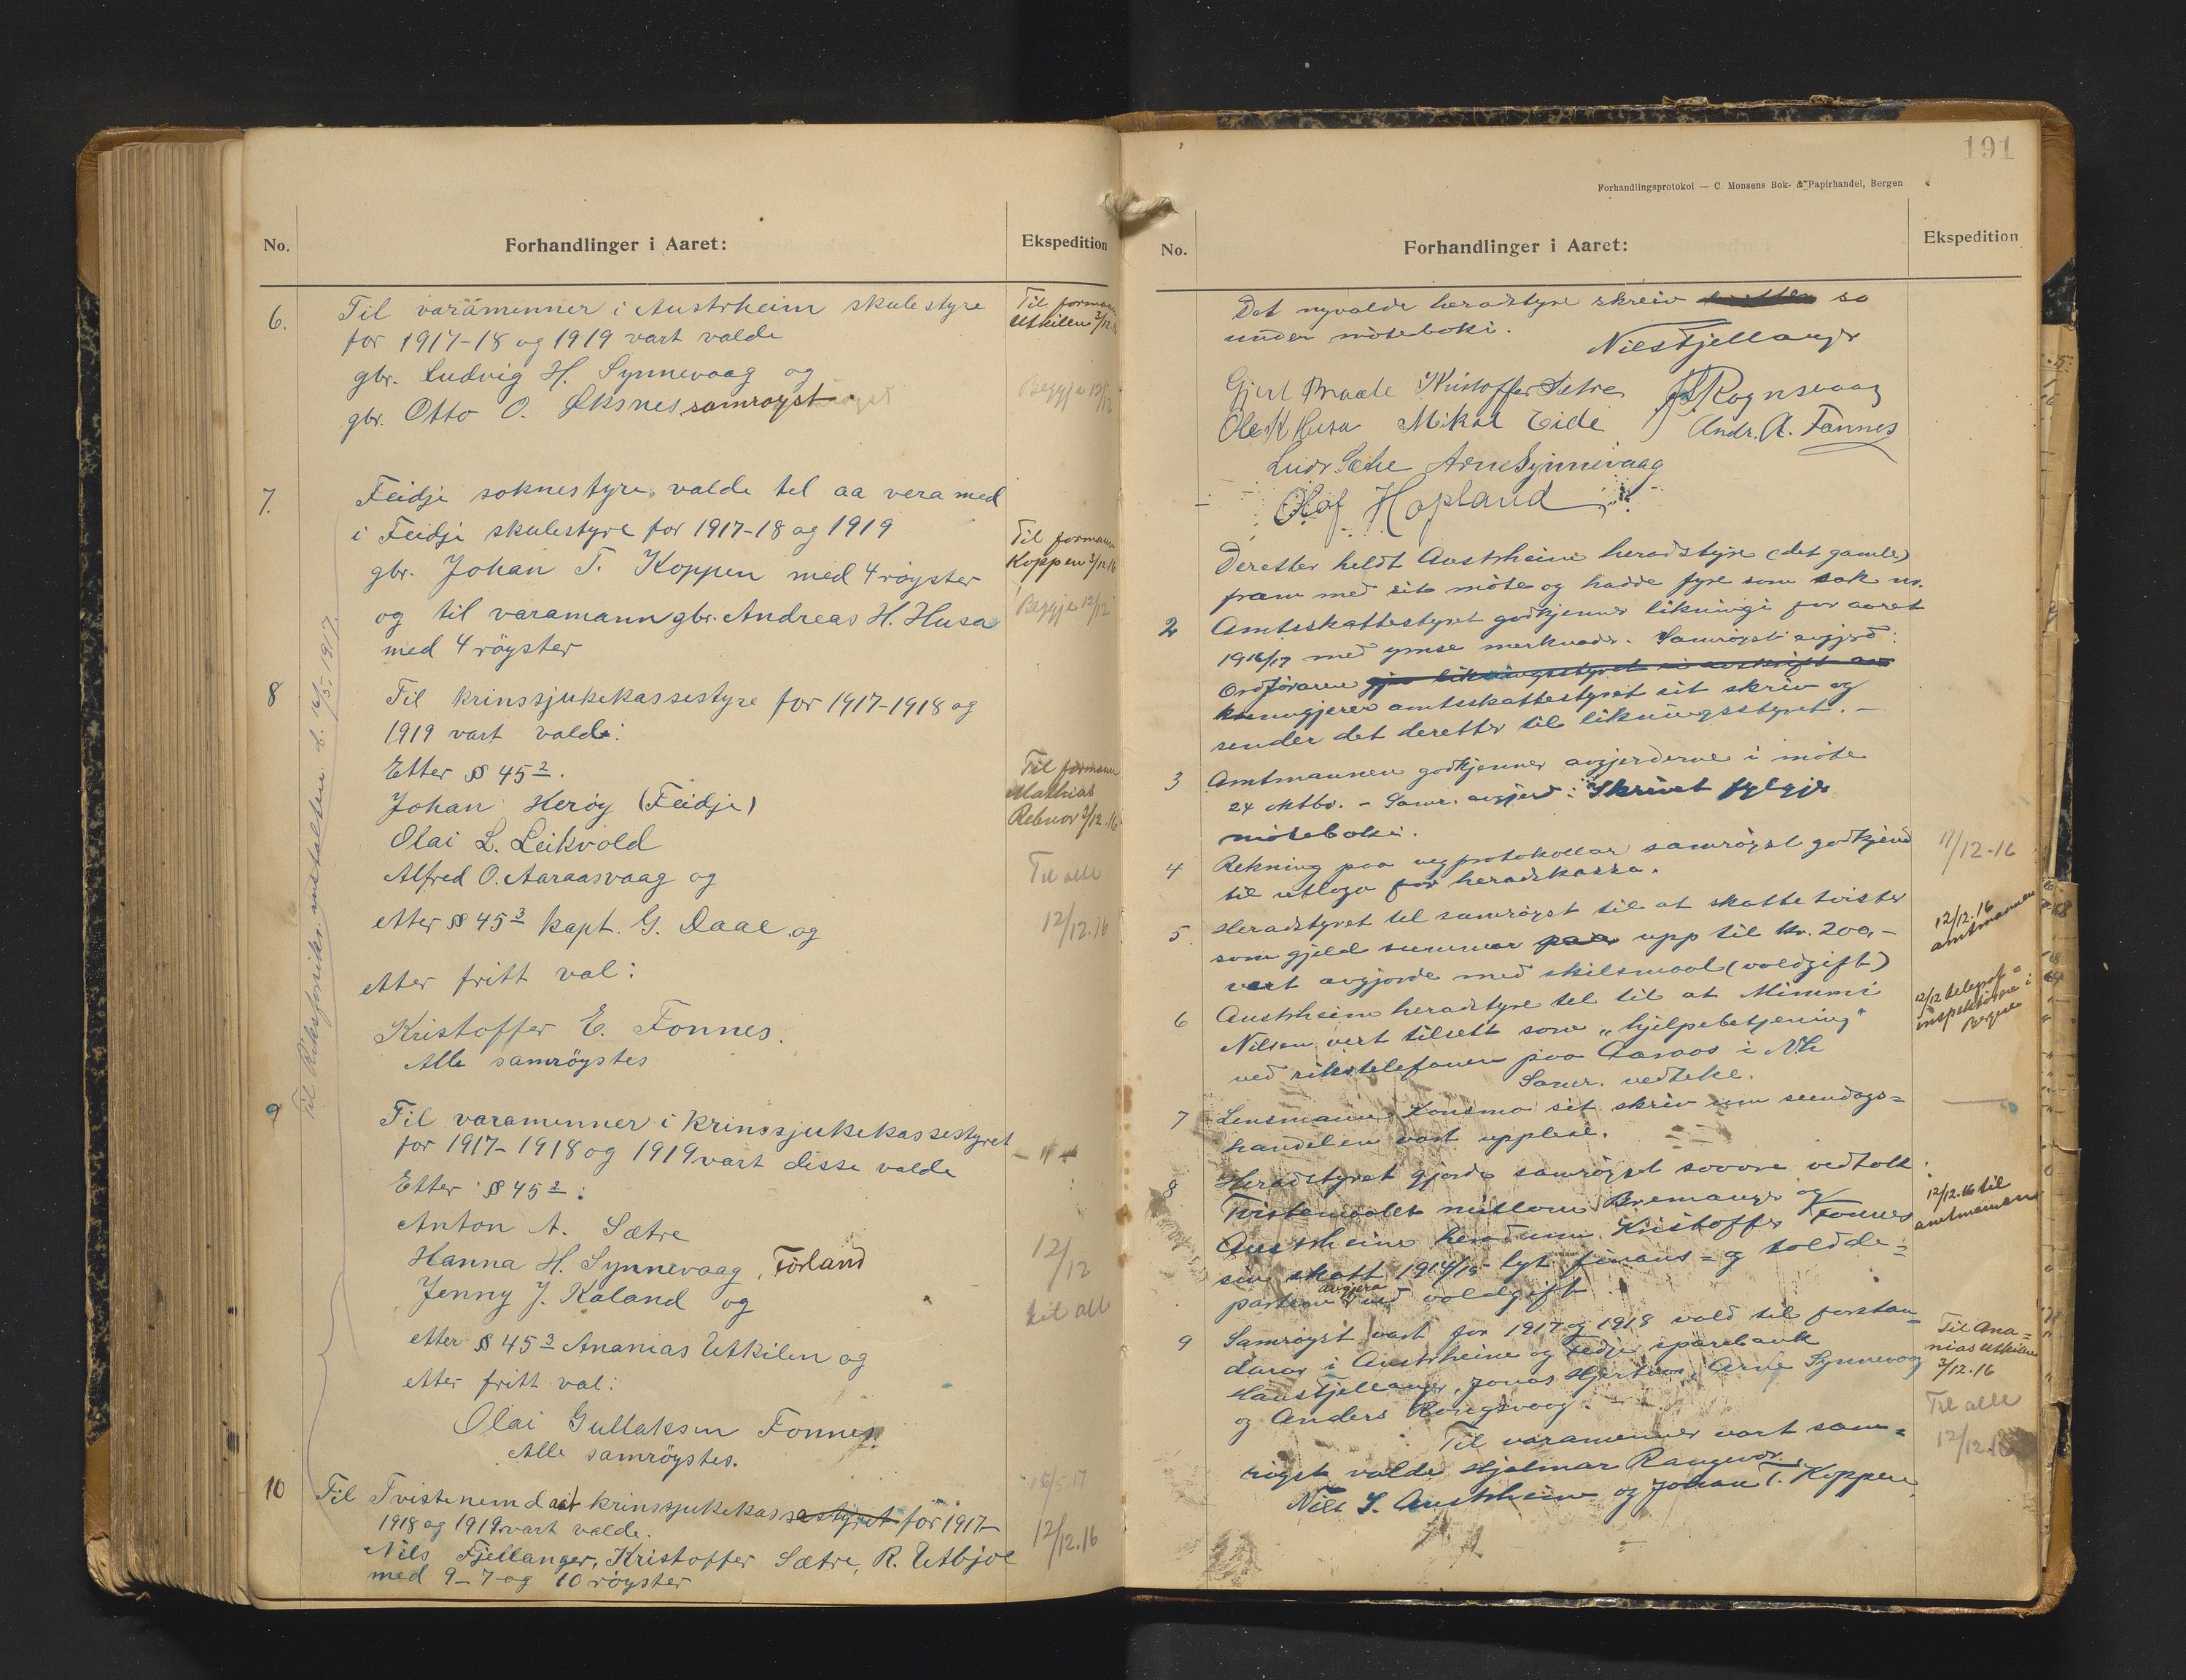 No.
Forhandlinger i Aaret:
Ekspedition
6. Til varamenner i Austrheim skulestyre
for 1917-18 og 1919 vart valde
gbr. Ludvig H. Synnevaag og
gbr. Otto O. Øksnes samrøyst
Til formann
Utkilen 3/12.16
Beggje 12/12
7. Feidje soknestyre valde tel aa vera med
i Feidje skulestyre for 1917-18 og 1919
gbr. Johan T. Koppen med 4 røyster
og til varamann gbr. Andreas H. Husa
med 4 røyster
Til formann
Koppen 3/12 16
Beggje 12/12
8 Til krinssjukekassestyre for 1917-1918 og
1919 vart valde:
Etter § 45 2.
Johan Herøy (Feidje)
Olai L. Leikvold
Alfred O. Aaraasvaag og
etter § 45 3 kapt. G. Daae og
etter fritt val:
Kristoffer E. Fonnes.
Alle samrøystes
Til formann
Mathias
Rebnor 3/12.16
Til alle
12/12.16
Til Riksforsikr. anstalten d. 16/5.1917.
9 Til varamenner i krinssjukekassestyret
for 1917-1918 og 1919 vart desse valde
Etter § 45 2:
Anton A. Sætre
Hanna H. Synnevaag, Førland
Jenny J. Kaland og
etter § 45 3 Ananias Utkilen og
etter fritt val:
Olai Gullaksen Fonnes.
Alle samrøystes.
— " —
12/12
til all
10 Til Tvistenemd ved krinssjukekassestyret for 1917-
1918 og 1919 vart valde.
Nils Fjellanger, Kristoffer Sætre, R. Utbjoe
med 9-7 og 10 røyster
16/5.17
12/12.16
191
Forhandlingsprotokol — C. Monsens Bok- & Papirhandel, Bergen
No.
Forhandlinger i Aaret:
Ekspedition
Det nyvalde heradstyre skreiv so
under møteboki.
Nils Fjellanger
Gjert Braate Kristoffer Sætre Rognsvaag
Ole K Husa Mikal Eide Andr. A. Fonnes
Ludv. Sætre Arne Synnevaag
Olaf Hopland
Deretter heldt Austrheim heradstyre (det gamle)
fram med sit møte og hadde fyre som sak nr.
2 Amtsskattestyret godkjenner likningi for aaret
1916/17 med ymse merknadr. Samrøyst avgjerd:
Ordføraren gjev likningsstyret ei avskrift av
kunngjerer amtsskattestyret sit skriv og
sender det deretter til likningsstyret. —
3 Amtmannen godkjenner avgjerderne i møte
24 oktbr. – Samr. avgjerd: Skrivet fylgjer
møteboki.
4 Rekning paa vegprotokollar samrøyst godkjend
til utlega for heradskassa.
11/12-16
5. Heradstyret tel samrøyst til at skattetvister
som gjeld summar paa upp til kr. 200,-
vert avgjorde med skilsmaal (voldgift)
12/12.16
amtmannen
6 Austrheim heradstyre tel til at Mimmi
Nilsen vert tilsett som "hjelpebetjening"
ved rikstelefonen paa Aaraas i N.h
Samr. vedteke.
12/12 telegraf-
inspektøren i
Bergen
7 Lensmann Konsmo sit skriv um sundags-
handelen vart upplese.
8 Heradstyret gjorde samrøyst sovore vedtak:
Tvistemaalet millom Bremanger og
Austrheim herad um Kristoffer Fonnes
sin skatt 1914/15 lyt finans- og tollde-
partem. avgjera ved voldgift
12/12.16 til
amtmannen
9 Samrøyst vart for 1917 og 1918 vald til forstan-
darar i Austrheim og Fedje sparebank
Hans Fjellanger, Jonas Hjertaas, Arne Synnevaag
og Anders Rongsvaag. –
Til varamenner vart sam-
røyst valde Hjalmar Rangenor.
Nils S. Austrheim og Johan T. Koppen.
Til Ana-
nias Utkilen
3/12.16
Til alle
12/12.16